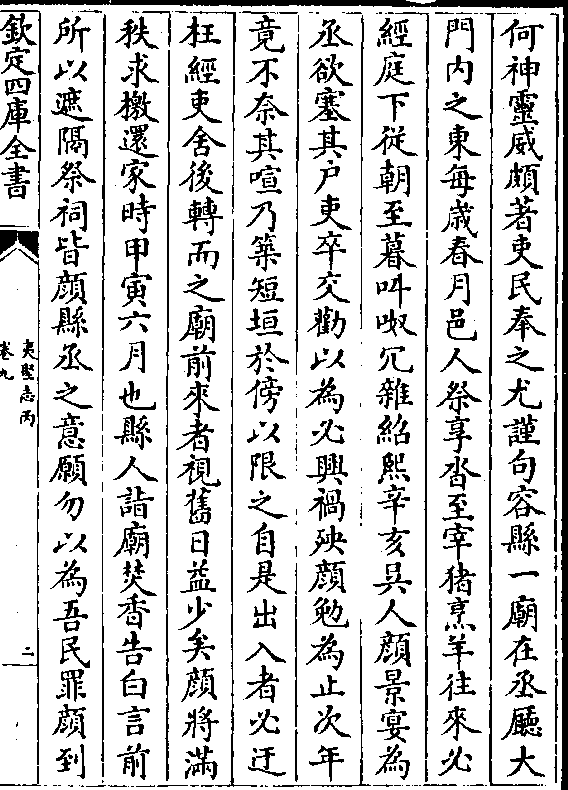 何神靈威頗著吏民奉之尤謹句容縣一廟在丞廳大
門内之東每歳春月邑人祭享沓至宰猪烹羊往來必
經庭下從朝至暮叫呶冗雜紹熙辛亥吳人顔景宴為
丞欲塞其户吏卒交勸以為必興禍殃顔勉為止次年
竟不奈其喧乃築短垣於傍以限之自是出入者必迂
枉經吏舍後轉而之廟前來者視舊日益少矣顔將滿
秩求檄還家時甲寅六月也縣人詣廟焚香告白言前
所以遮隔祭祠皆顔縣丞之意願勿以為吾民罪顔到
欽定四庫全書
夷堅志丙
卷九
二